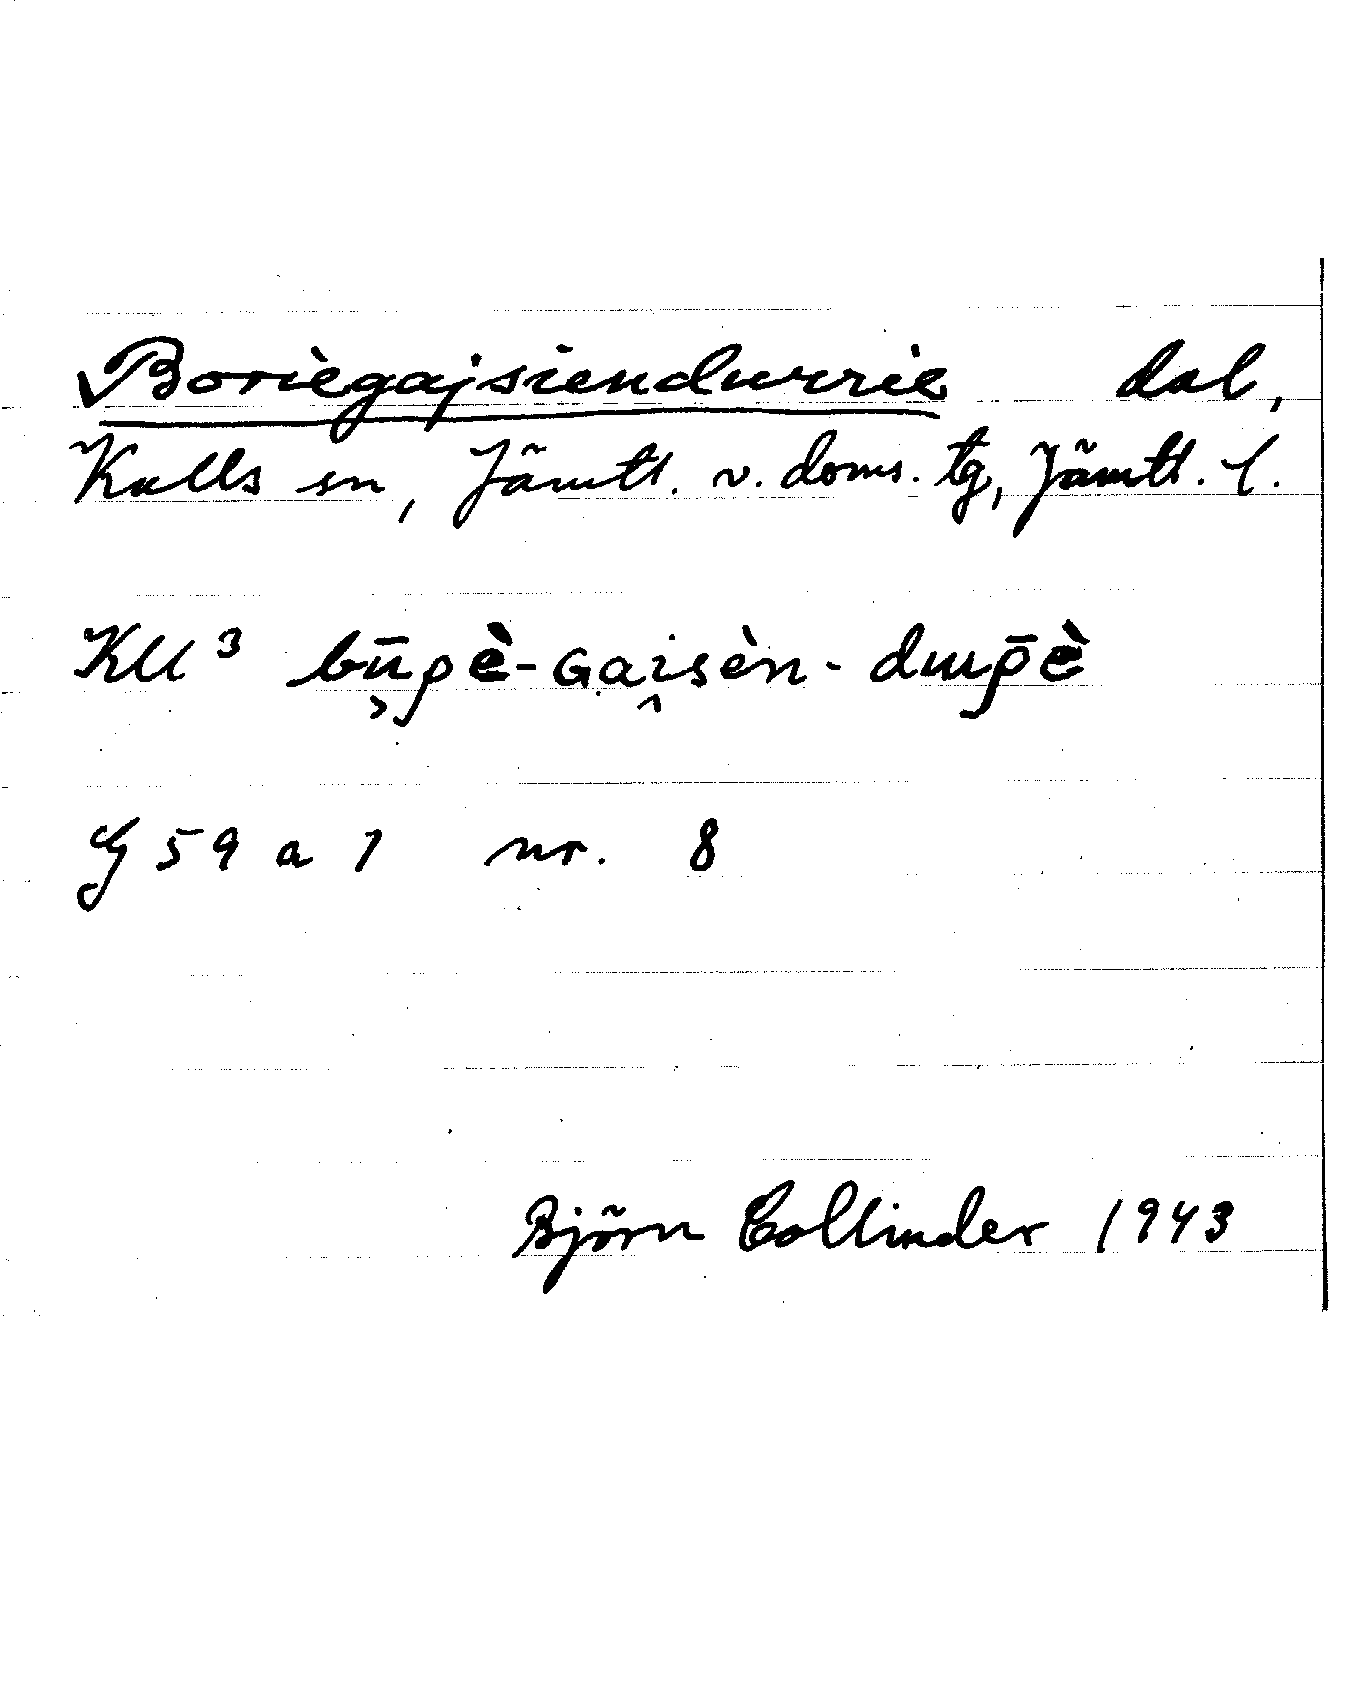 Boriegajsiendurrie dal,
Kalls sn, Jämtl. v. doms. tg, Jämtl. l.
Kll³ bū̹ρè-Gai̭sèn-duρ̄è
G 59 a 1 nr. 8
Björn Collinder 1943